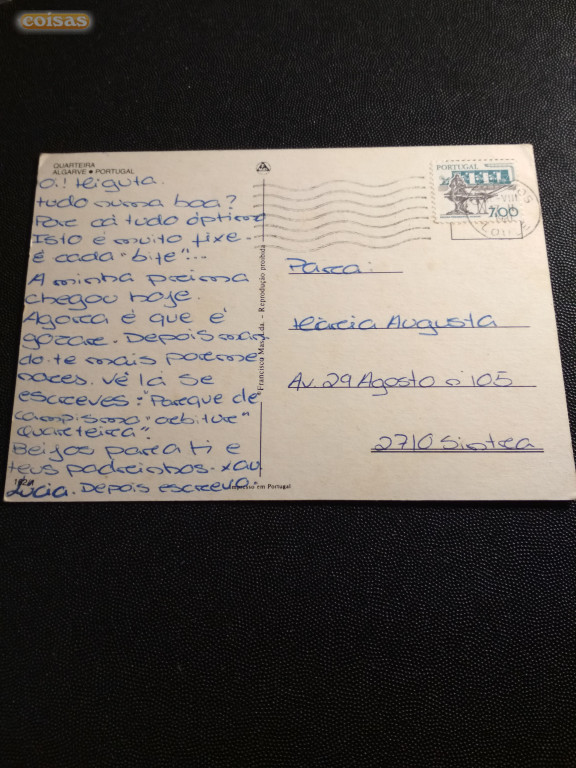 coisas
QUARTEIRA
ALGARVE • PORTUGAL
Oi! Miguta.
tudo numa boa?
Por cá tudo óptimo
Isto é muito fixe.
é cada "bife"...
A minha prima
chegou hoje.
Agora é que é
gozar. Depois man
do-te mais porme
nores. Vê lá se
escreves: "Parque de
campismo "orbitur"
Quarteira".
Beijos para ti e
teus padrinhos. xau.
Lúcia. Depois escrevo.
Francisco Mas Lda. - Reprodução proibida
Impresso em Portugal
PORTUGAL
7,00
Para:
Márcia Augusta
Av. 29 Agosto nº 105
2710 Sintra